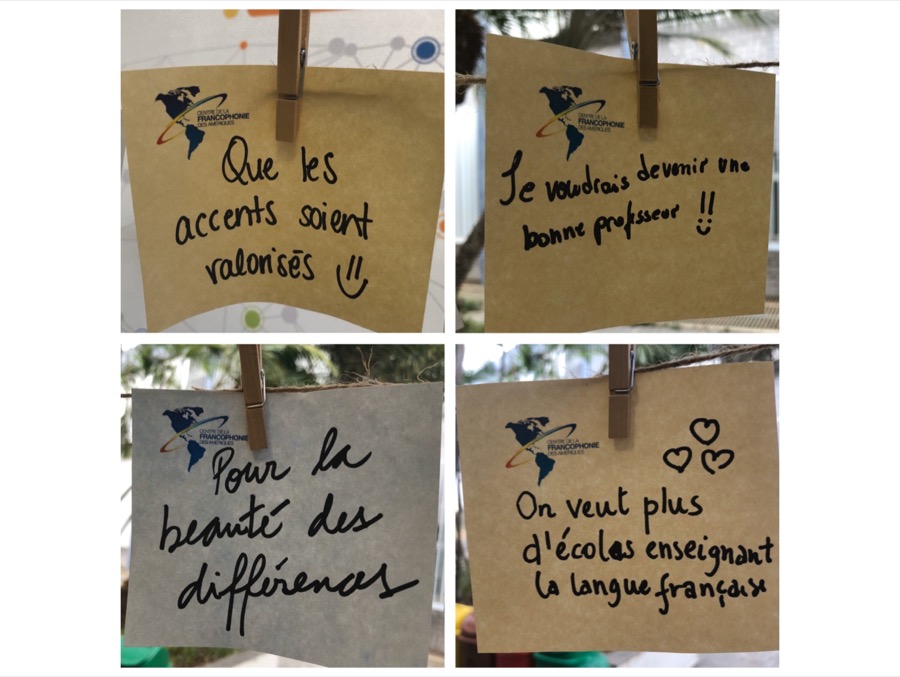 CENTRE DE LA
FRANCOPHONIE
DES AMÉRIQUES
Que les
accents soient
valorisés
CENTRE DE LA
FRANCOPHONIE
DES AMÉRIQUES
Je voudrais devenir une
bonne professeur !!
CENTRE DE LA
FRANCOPHONIE
DES AMÉRIQUES
Pour la
beauté des
différences
CENTRE DE LA
FRANCOPHONIE
DES AMÉRIQUES
On veut plus
d'écoles enseignant
la langue française